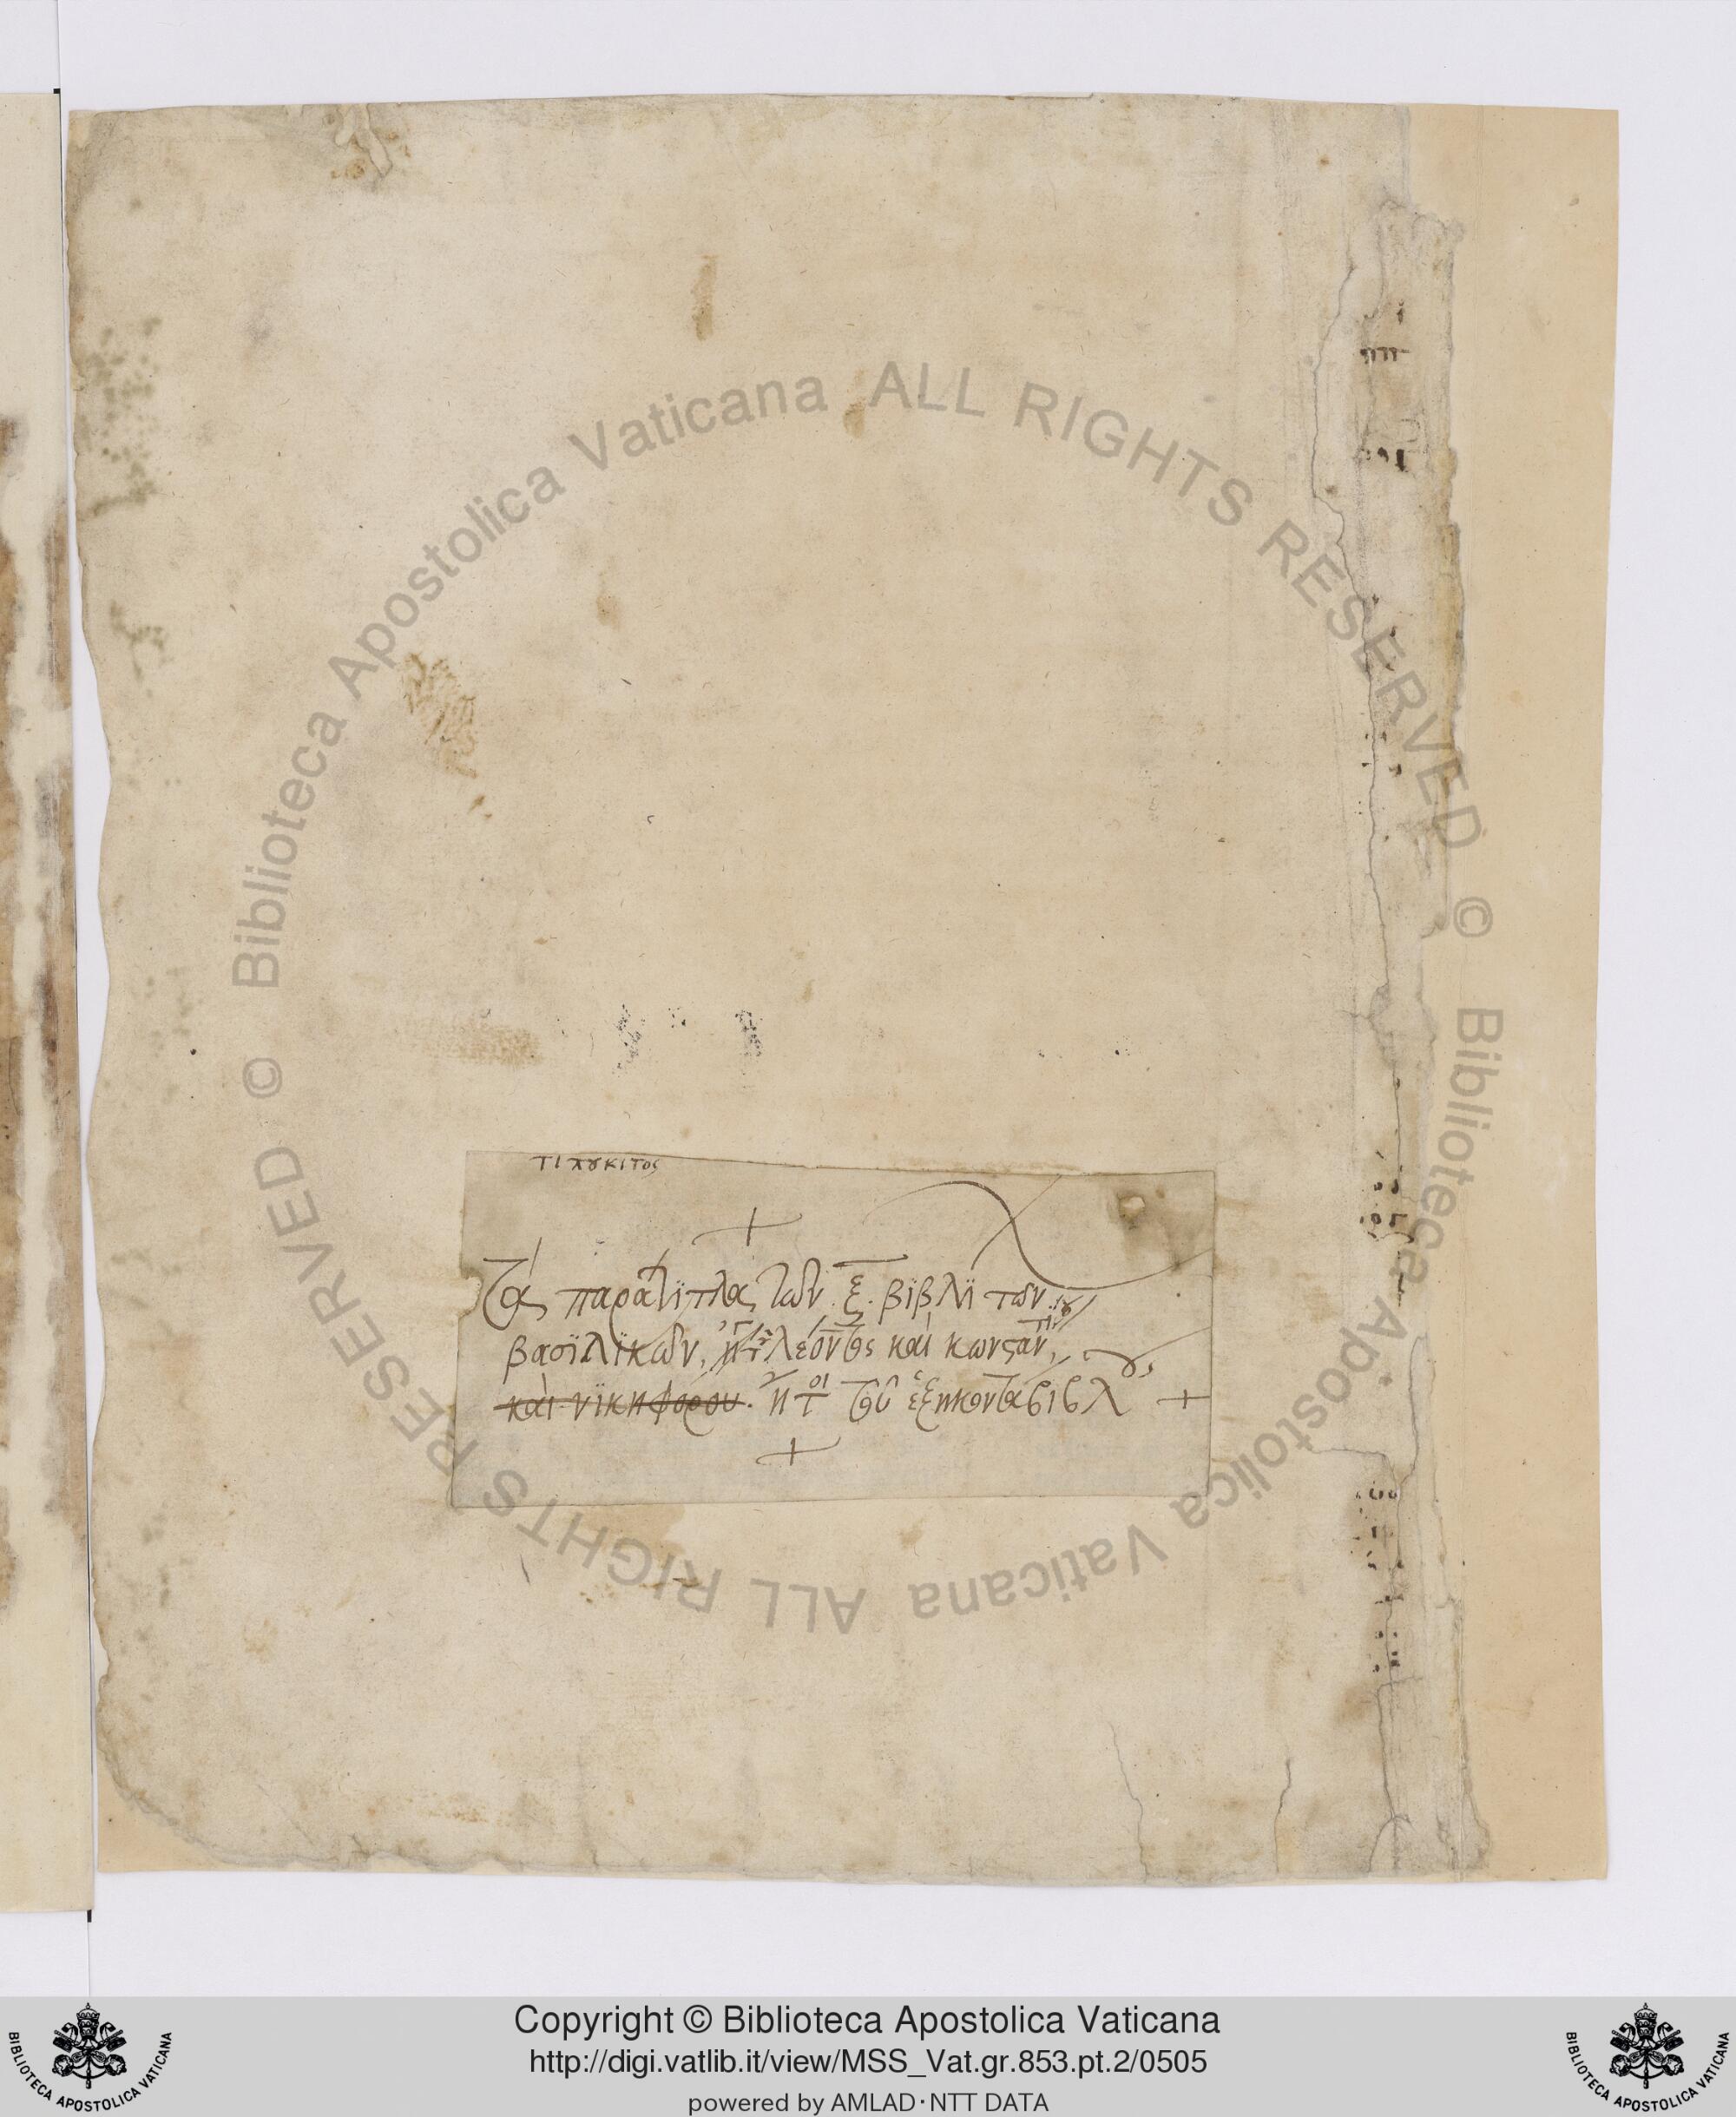 τιπυκιτος
+
τάς παράτιτλας τῶν ξ βιβλί των
βασιλϊκῶν, λέοντος καὶ κωνσταν,
καὶ νϊκηφόρου. ἤτοι τοῦ ἑξηκονταβιβλ +
+
© Biblioteca Apostolica Vaticana ALL RIGHTS RESERVED
© Biblioteca Apostolica Vaticana ALL RIGHTS RESERVED
Copyright © Biblioteca Apostolica Vaticana
http://digi.vatlib.it/view/MSS_Vat.gr.853.pt.2/0505
powered by AMLAD·NTT DATA
BIBLIOTECA APOSTOLICA VATICANA
BIBLIOTECA APOSTOLICA VATICANA